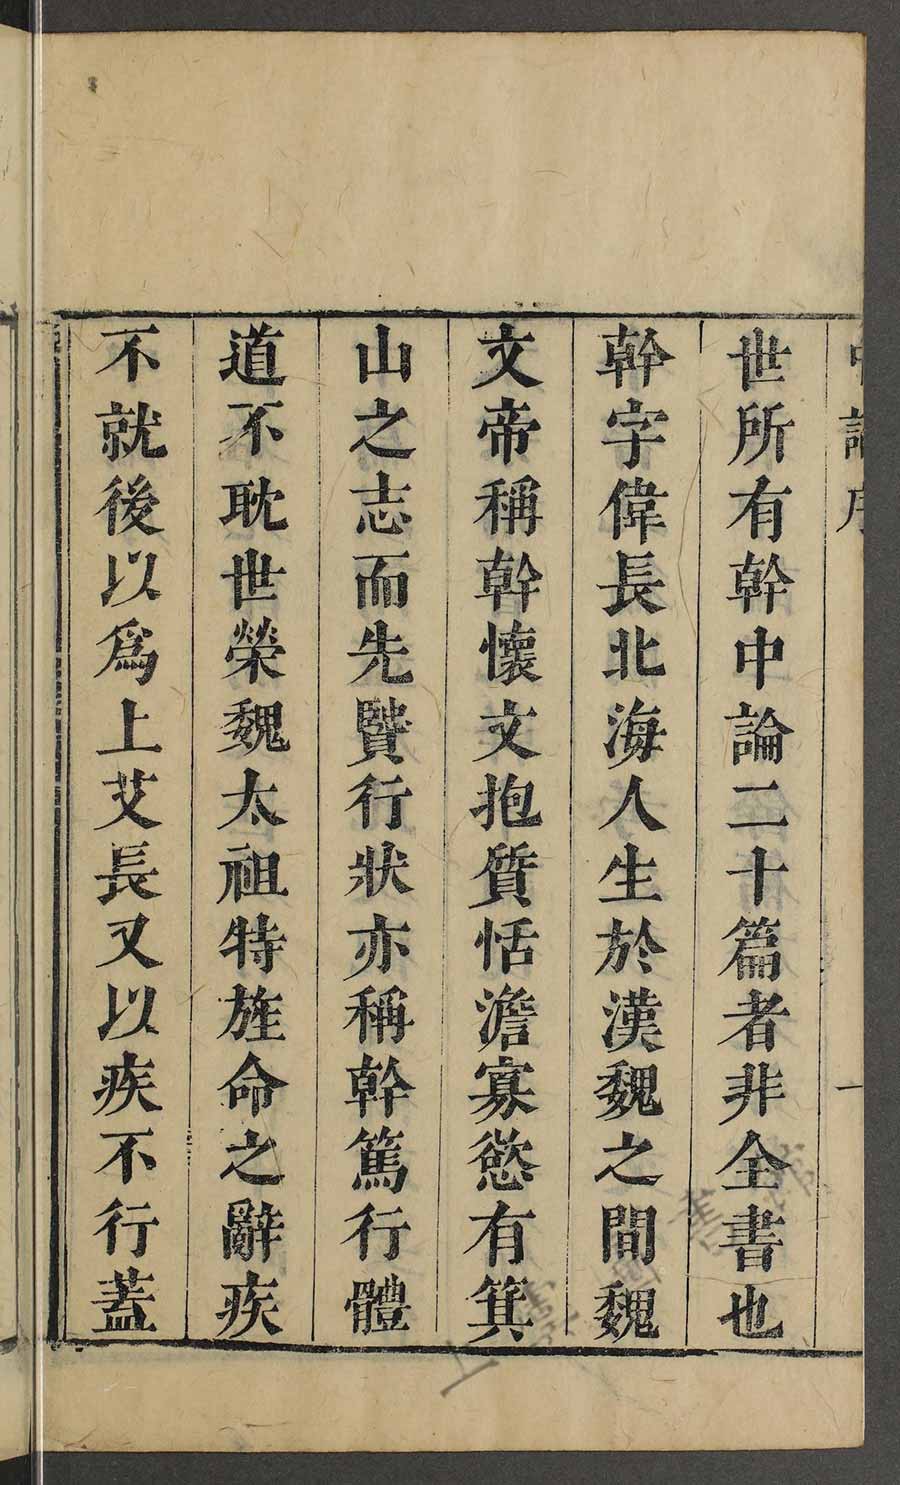 世所有幹中論二十篇者非全書也
幹字偉長北海人生於漢魏之間魏
文帝稱幹懷文抱質恬澹寡慾有箕
山之志而先賢行狀亦稱幹篤行體
道不耽世榮魏太祖特旌命之辭疾
不就後以爲上艾長又以疾不行蓋